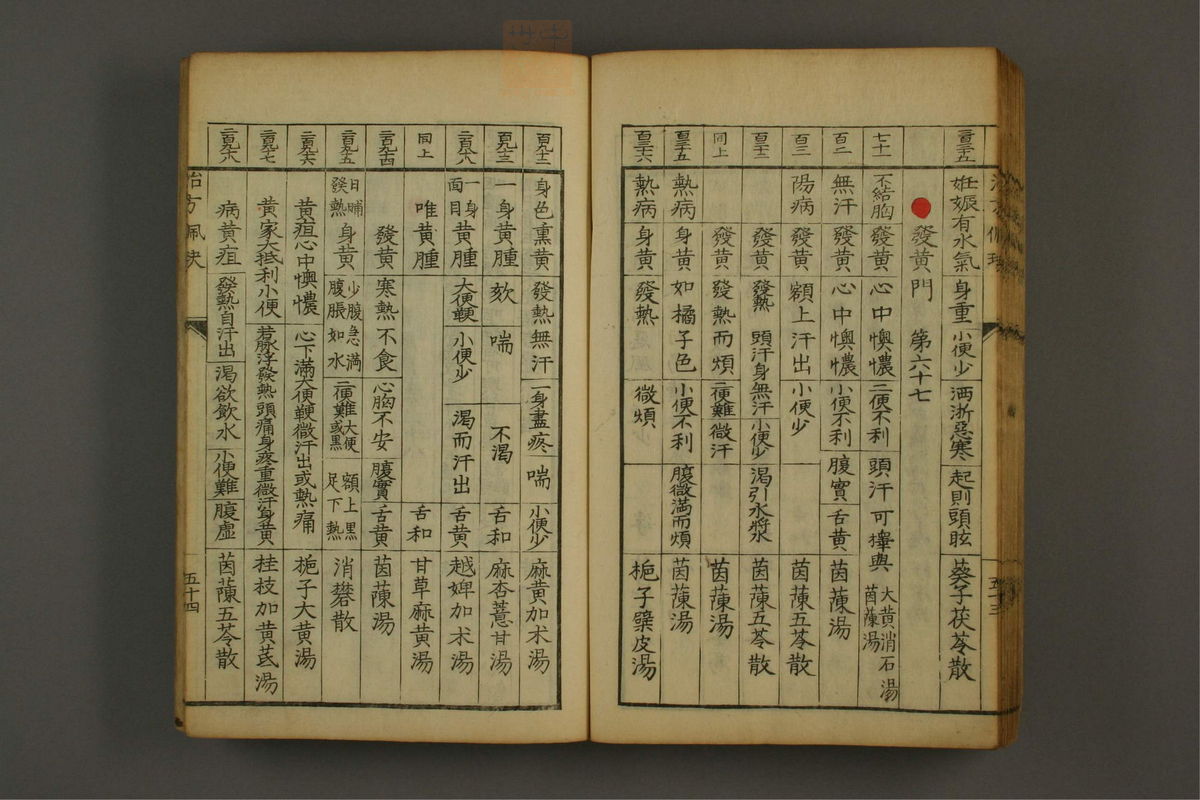 妊娠有水氣 身重 小便少 洒淅惡寒 起則頭眩 葵子茯苓散
發黃門 第六十七
七十一 不結胸 發黃 心中懊憹 二便不利 頭汗 可擧與 大黃消石湯 茵蔯湯
百二 無汗 發黃 心中懊憹 小便不利 腹實 舌黃 茵蔯湯
百三 陽病 發黃 額上汗出 小便少 茵蔯五苓散
發黃 發熱 頭汗身無汗 小便少 渴引水漿 茵蔯五苓散
同上 發黃 發熱而煩 二便難 微汗 茵蔯湯
熱病 身黃 如橘子色 小便不利 腹微滿而煩 茵蔯湯
熱病 身黃 發熱 微煩 梔子蘗皮湯
五十三
身色熏黃 發熱無汗 一身盡疼 喘 小便少 麻黃加朮湯
一身黃腫 欬 喘 不渴 舌和 麻杏薏甘湯
一身面目黃腫 大便鞕 小便少 渴而汗出 舌黃 越婢加朮湯
同上 唯黃腫 舌和 甘草麻黃湯
發黃 寒熱不食 心胸不安 腹實 舌黃 茵蔯湯
日晡發熱 身黃 少腹急滿 腹脹如水 二便難或大便黑 額上黑 足下熱 消礬散
黃疸心中懊憹 心下滿大便鞕微汗出或熱痛 梔子大黃湯
黃家大抵利小便 若脉浮發熱頭痛身疼重微汗身黃 桂枝加黃芪湯
病黃疸 發熱自汗出 渴欲飲水 小便難 腹虛 茵蔯五苓散
治方佩玦
五十四